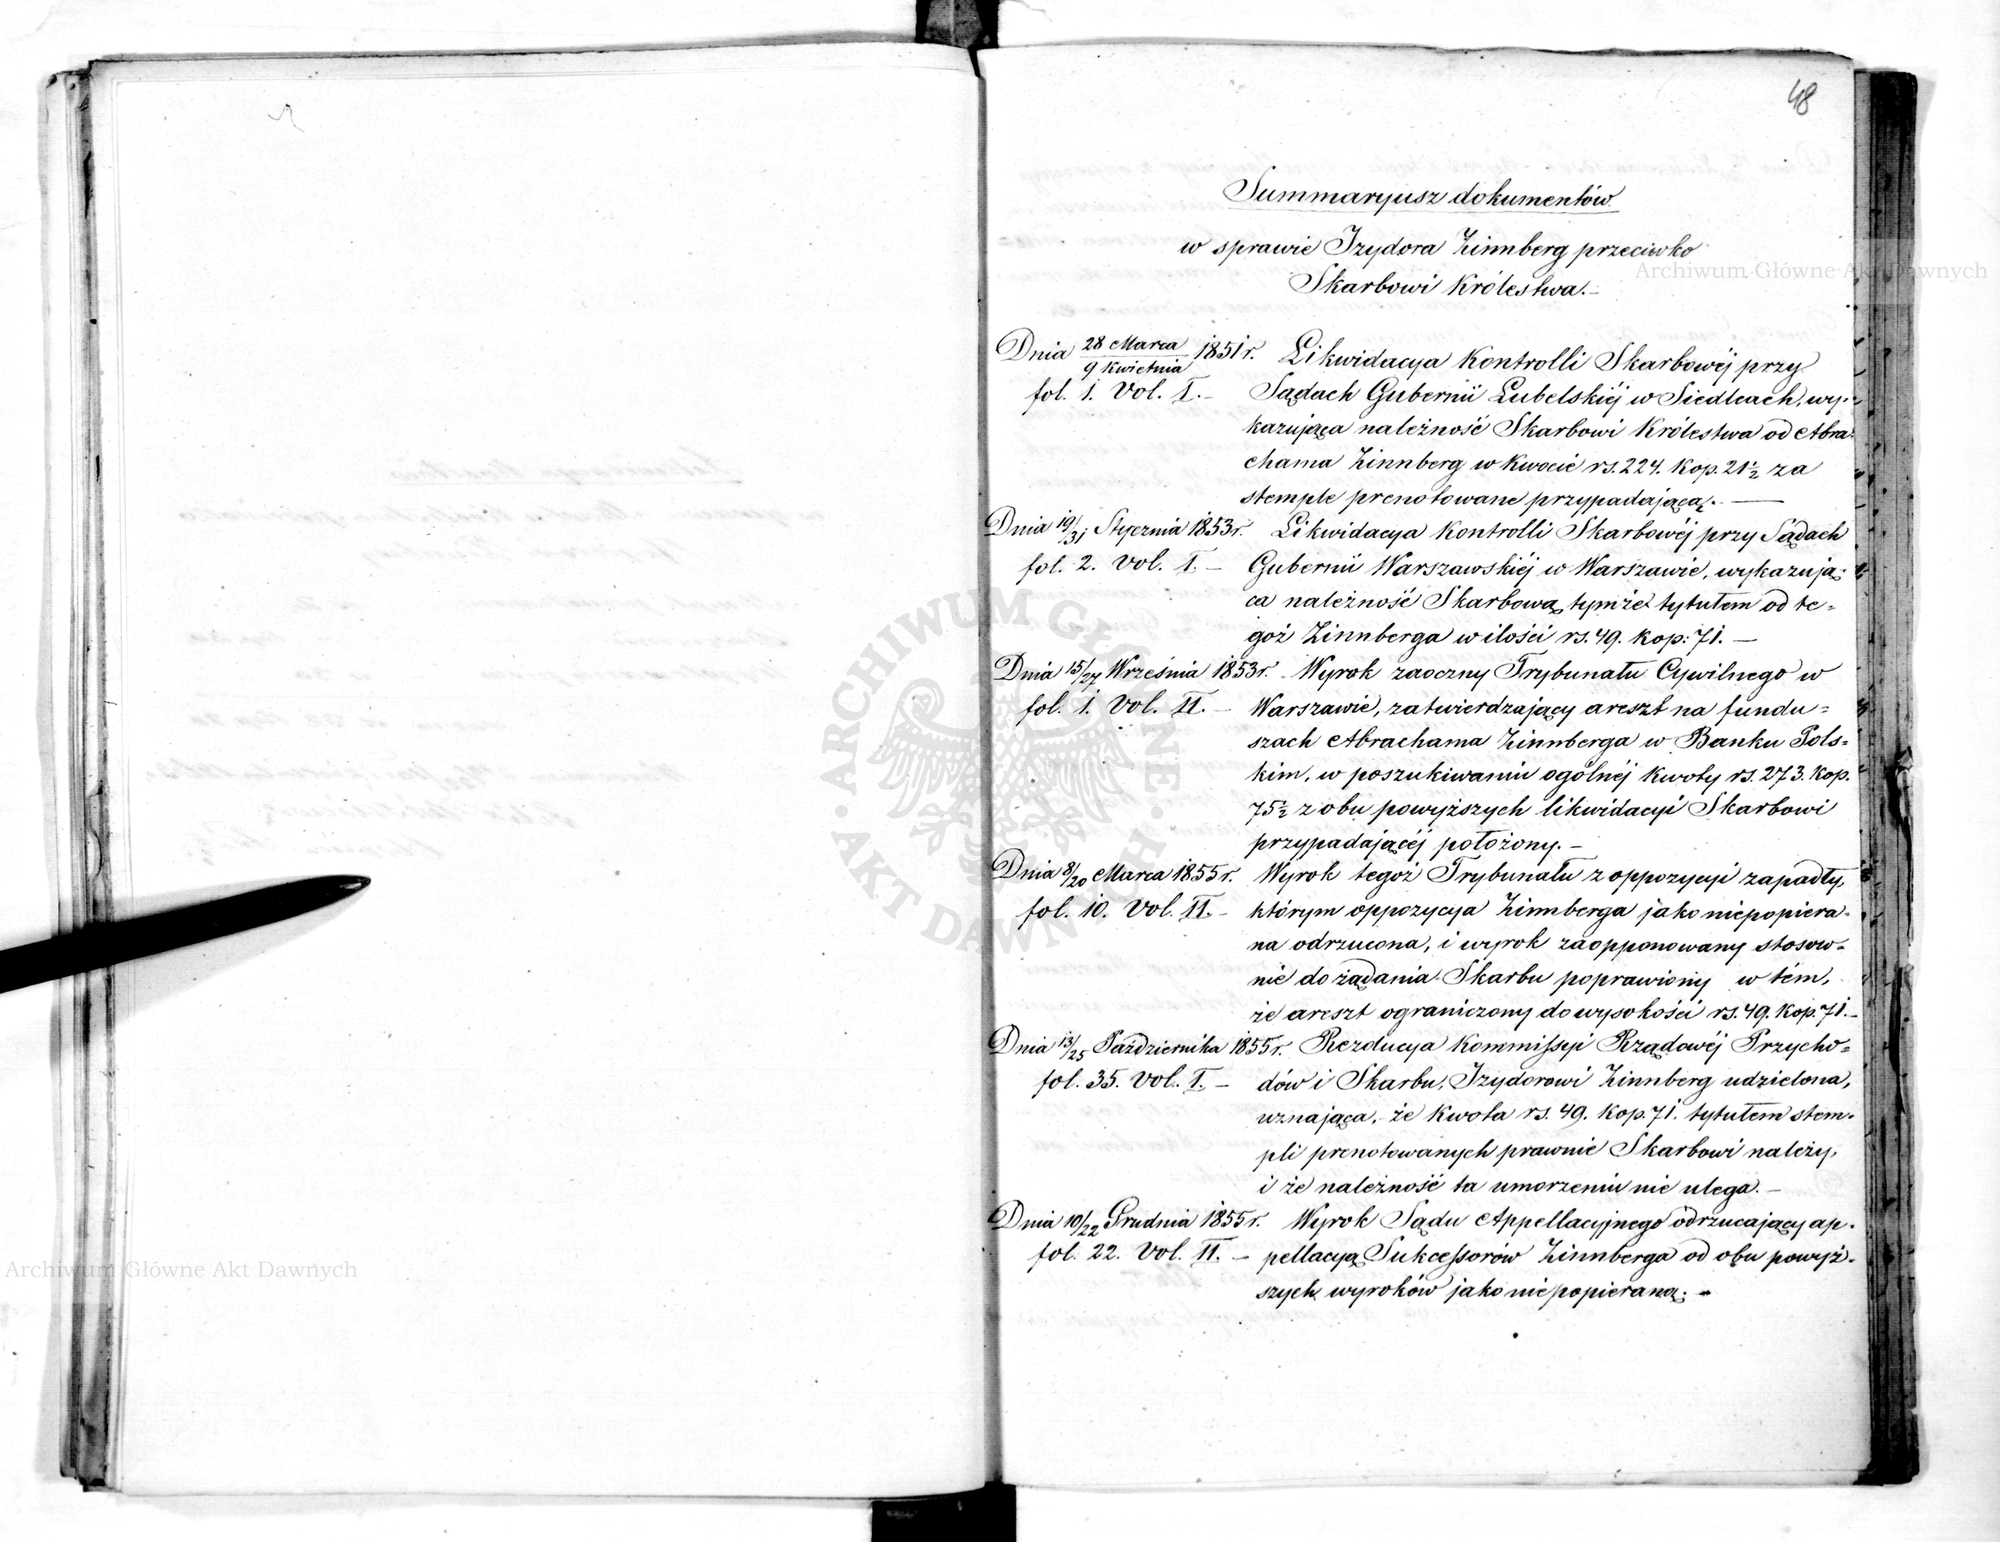 48
Summaryusz dokumentów
w sprawie Izydora Zinnberg przeciwko
Skarbowi Królestwa.–
Dnia 28 Marca / 9 Kwietnia 1851 r. Likwidacya Kontrolli Skarbowéj przy
fol. 1. Vol. I.– Sądach Gubernii Lubelskiéj w Siedlcach, wy-
kazująca należność Skarbowi Królestwa od Abra-
chama Zinnberg w kwocie rs. 224. kop. 21½ za
stemple prenotowane przypadającą.–
Dnia 19/31 Stycznia 1853 r. Likwidacya Kontrolli Skarbowéj przy Sądach
fol. 2. Vol. I.– Gubernii Warszawskiéj w Warszawie, wykazują-
ca należność Skarbową tymże tytułem od te=
goż Zinnberga w ilości rs. 49. kop: 71.–
Dnia 15/27 Września 1853 r. Wyrok zaoczny Trybunału Cywilnego w
fol. 1. Vol. II.– Warszawie, zatwierdzający areszt na fundu=
szach Abrachama Zinnberga w Banku Pols=
kim, w poszukiwaniu ogólnéj kwoty rs. 273. kop.
75½ z obu powyższych likwidacyi Skarbowi
przypadającéj położony.–
Dnia 8/20 Marca 1855 r. Wyrok tegoż Trybunału z oppozycyi zapadły,
fol. 10. Vol. II.– którym oppozycya Zinnberga jako niepopiera=
na odrzucona, i wyrok zaopponowany stosow=
nie do żądania Skarbu poprawiony w tém,
że areszt ograniczony do wysokości rs. 49. kop. 71.–
Dnia 13/25 Października 1855 r. Rezolucya Kommissyi Rządowéj Przycho=
fol. 35. Vol. I.– dów i Skarbu, Izydorowi Zinnberg udzielona,
uznająca, że kwota rs. 49. kop. 71. tytułem stem-
pli prenotowanych prawnie Skarbowi należy,
i że należność ta umorzeniu nie ulega.–
Dnia 10/22 Grudnia 1855 r. Wyrok Sądu Appellacyjnego odrzucający ap-
fol. 22. Vol. II.– pellacyą Sukcessorów Zinnberga od obu powyż-
szych wyroków jako niepopieraną.–
Archiwum Główne Akt Dawnych
Archiwum Główne Akt Dawnych
ARCHIWUM GŁÓWNE AKT DAWNYCH